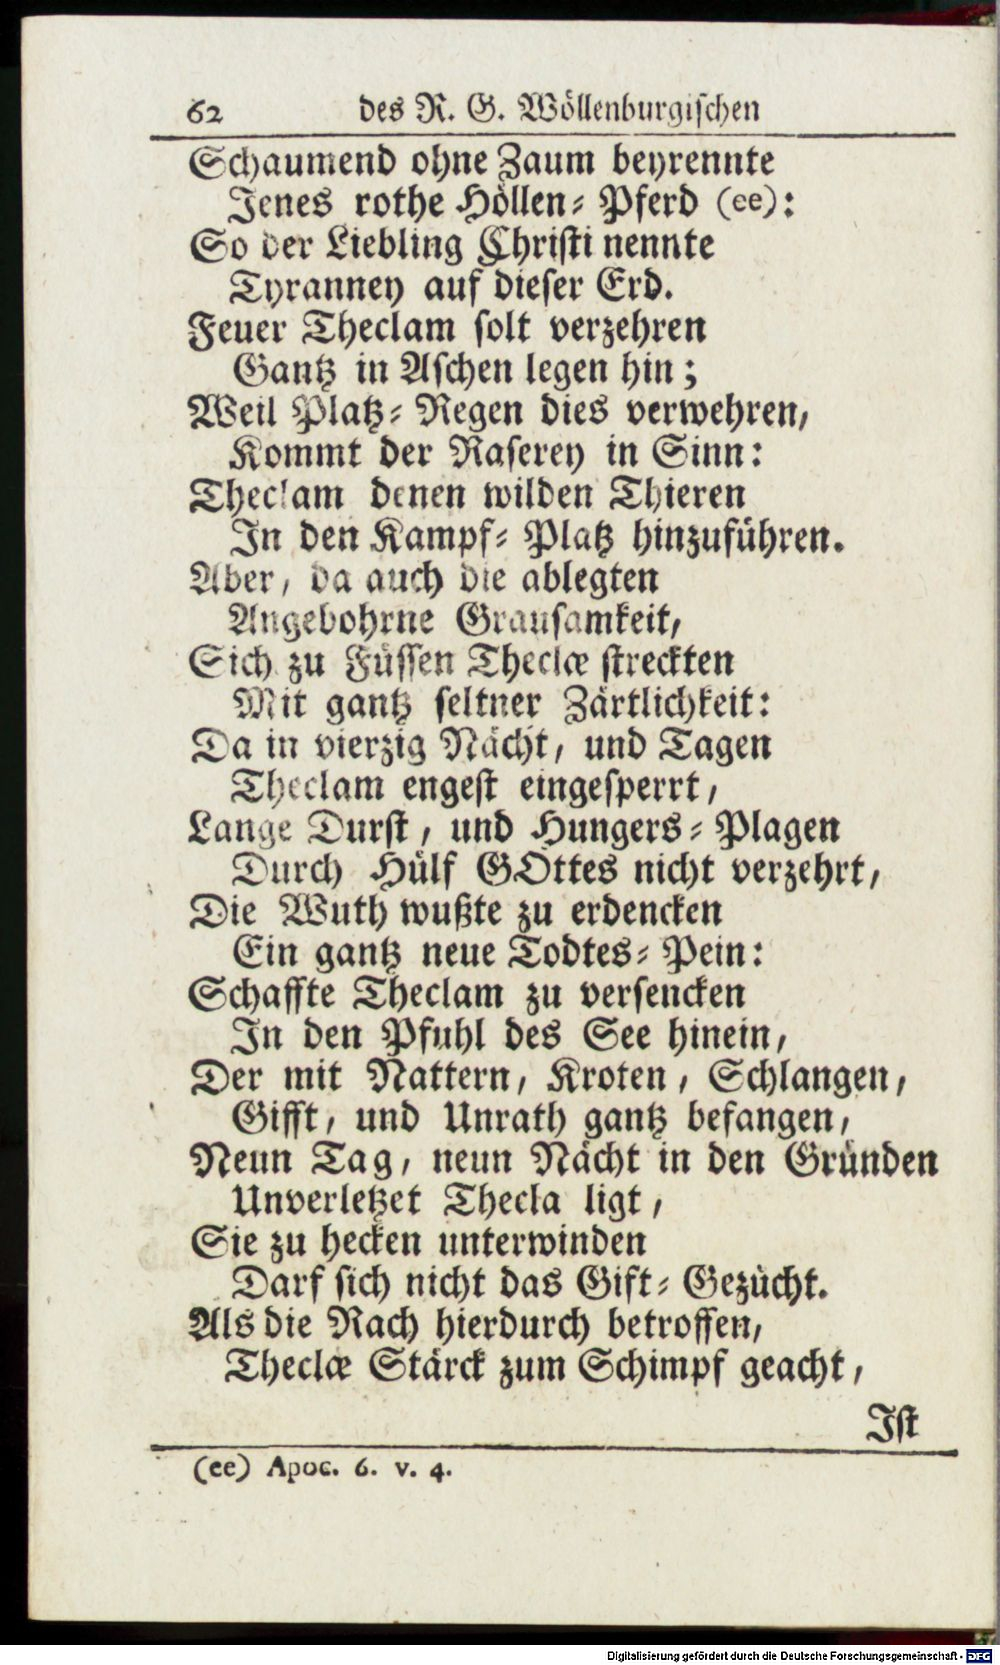 62 des R. G. Wöllenburgischen
Schaumend ohne Zaum beyrennte
Jenes rothe Höllen- Pferd (ee):
So der Liebling Christi nennte
Tyranney auf dieser Erd.
Feuer Theclam solt verzehren
Gantz in Aschen legen hin;
Weil Platz- Regen dies verwehren,
Kommt der Raserey in Sinn:
Theclam denen wilden Thieren
In den Kampf- Platz hinzuführen.
Aber, da auch die ablegten
Angebohrne Grausamkeit,
Sich zu Füssen Theclæ streckten
Mit gantz seltner Zärtlichkeit:
Da in vierzig Nächt, und Tagen
Theclam engest eingesperrt,
Lange Durst, und Hungers- Plagen
Durch Hülf GOttes nicht verzehrt,
Die Wuth wußte zu erdencken
Ein gantz neue Todtes- Pein:
Schaffte Theclam zu versencken
In den Pfuhl des See hinein,
Der mit Nattern, Kroten, Schlangen,
Gifft, und Unrath gantz befangen,
Neun Tag, neun Nächt in den Gründen
Unverletzet Thecla ligt,
Sie zu hecken unterwinden
Darf sich nicht das Gift- Gezücht.
Als die Rach hierdurch betroffen,
Theclæ Stärck zum Schimpf geacht,
Ist
(ee) Apoc. 6. v. 4.
Digitalisierung gefördert durch die Deutsche Forschungsgemeinschaft - DFG